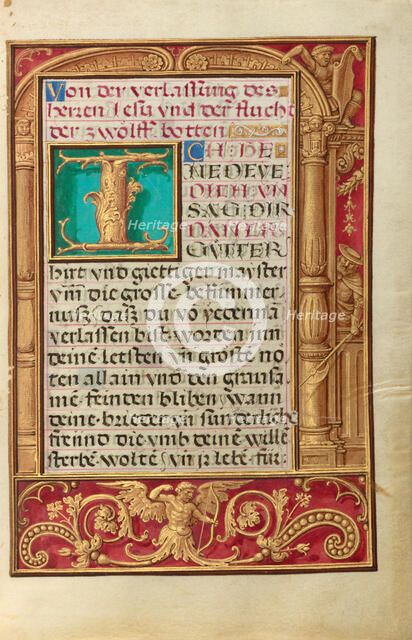 Von der verlassung des
herren Jesu vnd der flucht
der zwölff botten
ICH DE
NEDEVE
DICH VN
SAG DIR
DANCK
GVTTER
hirt vnd giettiger mayster
vm̄ die grosse bekummer
nuß daß du vō yederma
verlassen bist worden inn
deine letsten vn̄ gröste no
ten allain vnd den grausa
mē feinden bliben wann
deine brieder vn̄ sunderliche
freund die vmb deine wille
sterbē woltē vn̄ ir lebē für
Heritage
Heritage
Heritage
Heritage